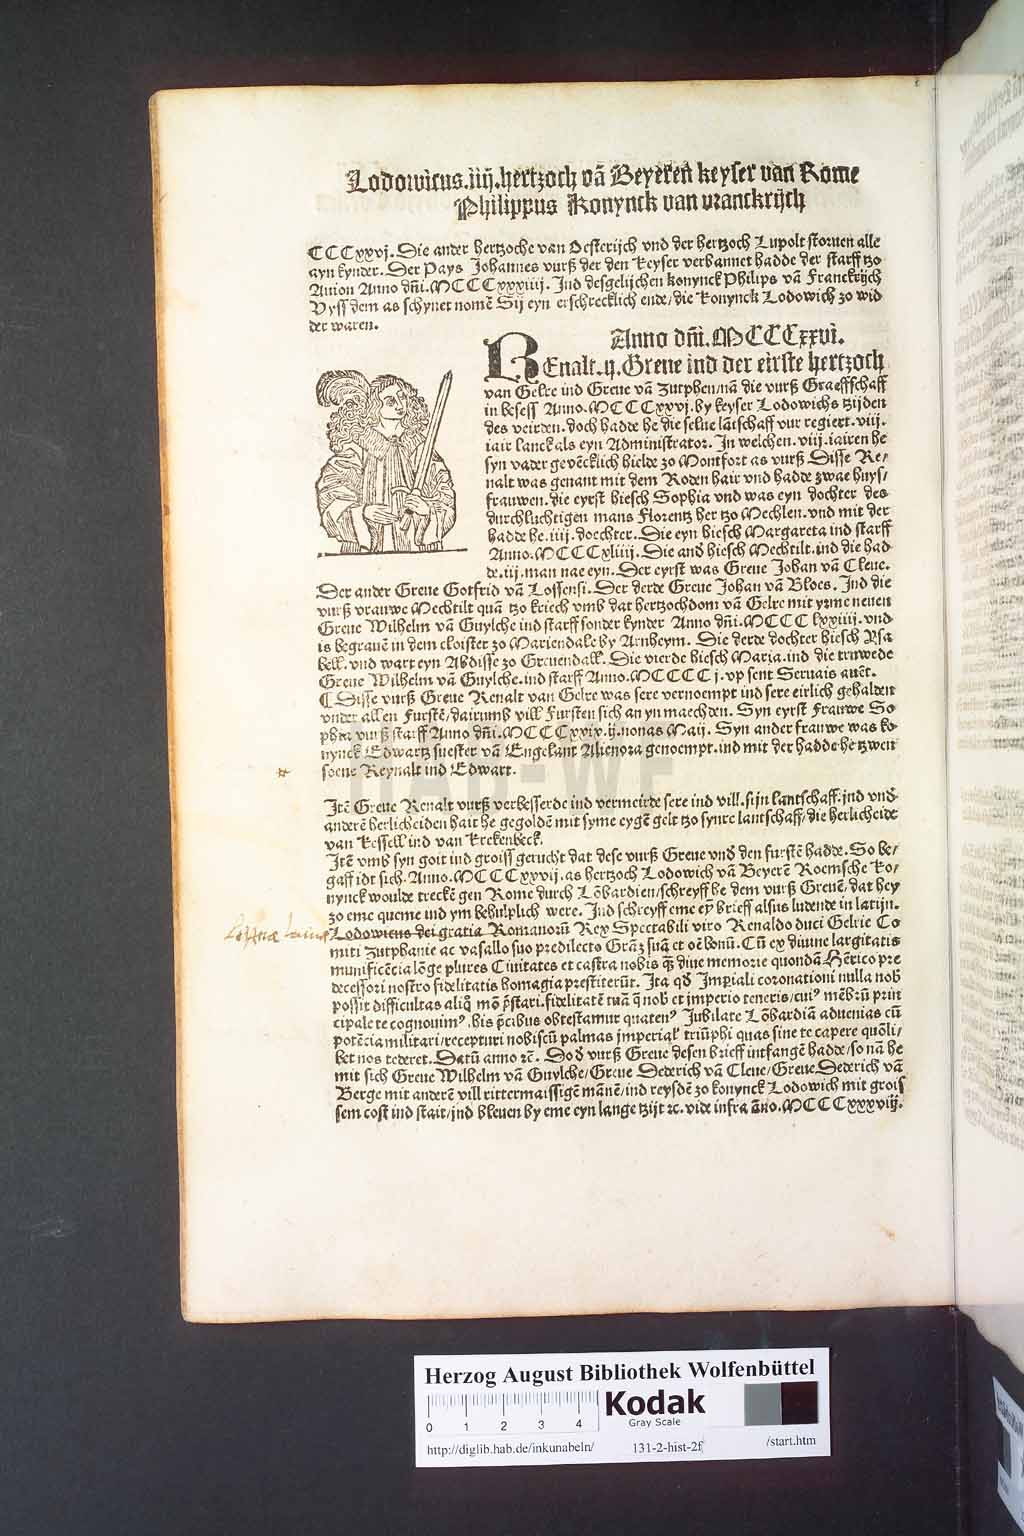 Lodowicus.iiij.hertzoch vā Beyeren keyser van Rome
Philippus Konynck van vranckrijch
CCCxxvj. Die ander hertzoche van Oesterijch vnd der hertzoch Lupolt storuen alle
ayn kynder. Der Pays Johannes vurß der den keyser verbannet hadde der starff tzo
Auion Anno dñi. MCCCxxxiiij. Ind desgelijchen konynck Philips vā Franckrijch
Vyss dem as schynet nomē Sij eyn erschrecklich ende/die konynck Lodowich zo wid
der waren.
Anno dñi. MCCCxxvi.
REnalt.ij. Greue ind der eirste hertzoch
van Gelre ind Greue vā Zutphen/nā die vurß Graeffschaff
in besess Anno. MCCCxxvj. by keyser Lodowichs tzijden
des veirden. doch hadde he die selue lātschaff vur regiert. viij.
iair lanck als eyn Administrator. In welchen. viij. iairen he
syn vader gevēcklich hielde zo Montfort as vurß Disse Re/
nalt was genant mit dem Roden hair vnd hadde zwae huys/
frauwen. die eyrst hiesch Sophia vnd was eyn dochter des
durchluchtigen mans Florentz her tzo Mechlen. vnd mit der
hadde he. iiij. doechter. Die eyn hiesch Margareta ind starff
Anno. MCCCxliiij. Die and hiesch Mechtilt. ind die had-
de. iij. man nae eyn. Der eyrst was Greue Johan vā Cleue.
Der ander Greue Gotfrid vā Lossensi. Der derde Greue Johan vā Bloes. Ind die
vurß vrauwe Mechtilt quā tzo kriech vmb dat hertzochdom vā Gelre mit yrme neuen
Greue Wilhelm vā Guylche ind starff sonder kynder Anno dñi. MCCC lxxiiij. vnd
is begrauē in dem cloister zo Mariendale by Arnheym. Die derde dochter hiesch Ysa
bell. vnd wart eyn Abdisse zo Greuendall. Die vierde hiesch Maria. ind die truwede
Greue Wilhelm vā Guylche. ind starff Anno. MCCCC j. vp sent Seruais auēt.
¶ Disse vurß Greue Renalt van Gelre was sere vernoempt ind sere eirlich gehalden
vnder allen Furstē/dairumb vill Fursten sich an yn maechden. Syn eyrst Frauwe So
phia vurß starff Anno dñi. MCCCxxix. ij. nonas Maij. Syn ander frauwe was ko
nynck Edwartz suester vā Engelant Alienora genoempt. ind mit der hadde he tzwen
soene Reynalt ind Edwart.
Itē Greue Renalt vurß verbesserde ind vermeirde sere ind vill. sijn lantschaff. jnd vnd
anderē herlicheiden hait he gegoldē mit syme eygē gelt tzo synre lantschaff/die herlicheide
van kessell ind van krekenbeck.
Itē vmb syn goit ind groiss gerucht dat dese vurß Greue vnd den furstē hadde. So be/
gaff idt sich. Anno. MCCCxxvij. as hertzoch Lodowich vā Beyerē Roemsche ko/
nynck woulde treckē gen Rome durch Lōbardien/schreyff he dem vurß Greuē/dat hey
zo eme queme ind ym behulplich were. Ind schreyff eme eȳ brieff alsus ludende in latijn.
Lodowicus dei gratia Romanorū Rex Spectabili viro Renaldo duci Gelrie Co
miti Zutphanie ac vasallo suo predilecto Grāz suā et oē bonū. Cū ex diuine largitatis
munificēcia lōge plures Ciuitates et castra nobis q̄ diue memorie quondā Hērico pre
decessori nostro fidelitatis homagia prestiterūt. Ita qđ Imperiali coronationi nulla nob
possit difficultas aliq̄ mō p̄stari. fidelitatē tuā q̄ nob et imperio teneris/cuiꝰ mēbrū prin
cipale te cognouimꝰ. his p̄cibus obtestamur quatenꝰ Jubilate Lōbardiā aduenias cū
potēcia militari/recepturi nobiscū palmas imperialꝭ triūphi quas sine te capere quōli/
bet nos tederet. Datū anno ꝛc̄. Do đ vurß Greue desen brieff intfangē hadde/so nā he
mit sich Greue Wilhelm vā Guylche/Greue Dederich vā Cleue/Greue Dederich vā
Berge mit anderē vill rittermaissigē māne/ind reysdē zo konynck Lodowich mit grois
sem cost ind stait/jnd bleuen by eme eyn lange tzijt ꝛc. vide infra āno. MCCCxxxviij.
HAB-WF
Herzog August Bibliothek Wolfenbüttel
0 1 2 3 4
Kodak
Gray Scale
http://diglib.hab.de/inkunabeln/ 131-2-hist-2f /start.htm